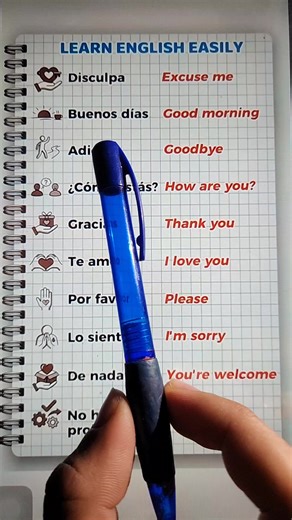 LEARN ENGLISH EASILY
Disculpa Excuse me
Buenos días Good morning
Goodbye
How are you?
Gracias Thank you
Te amo I love you
Por favor Please
Lo I'm sorry
De nada You're welcome
No